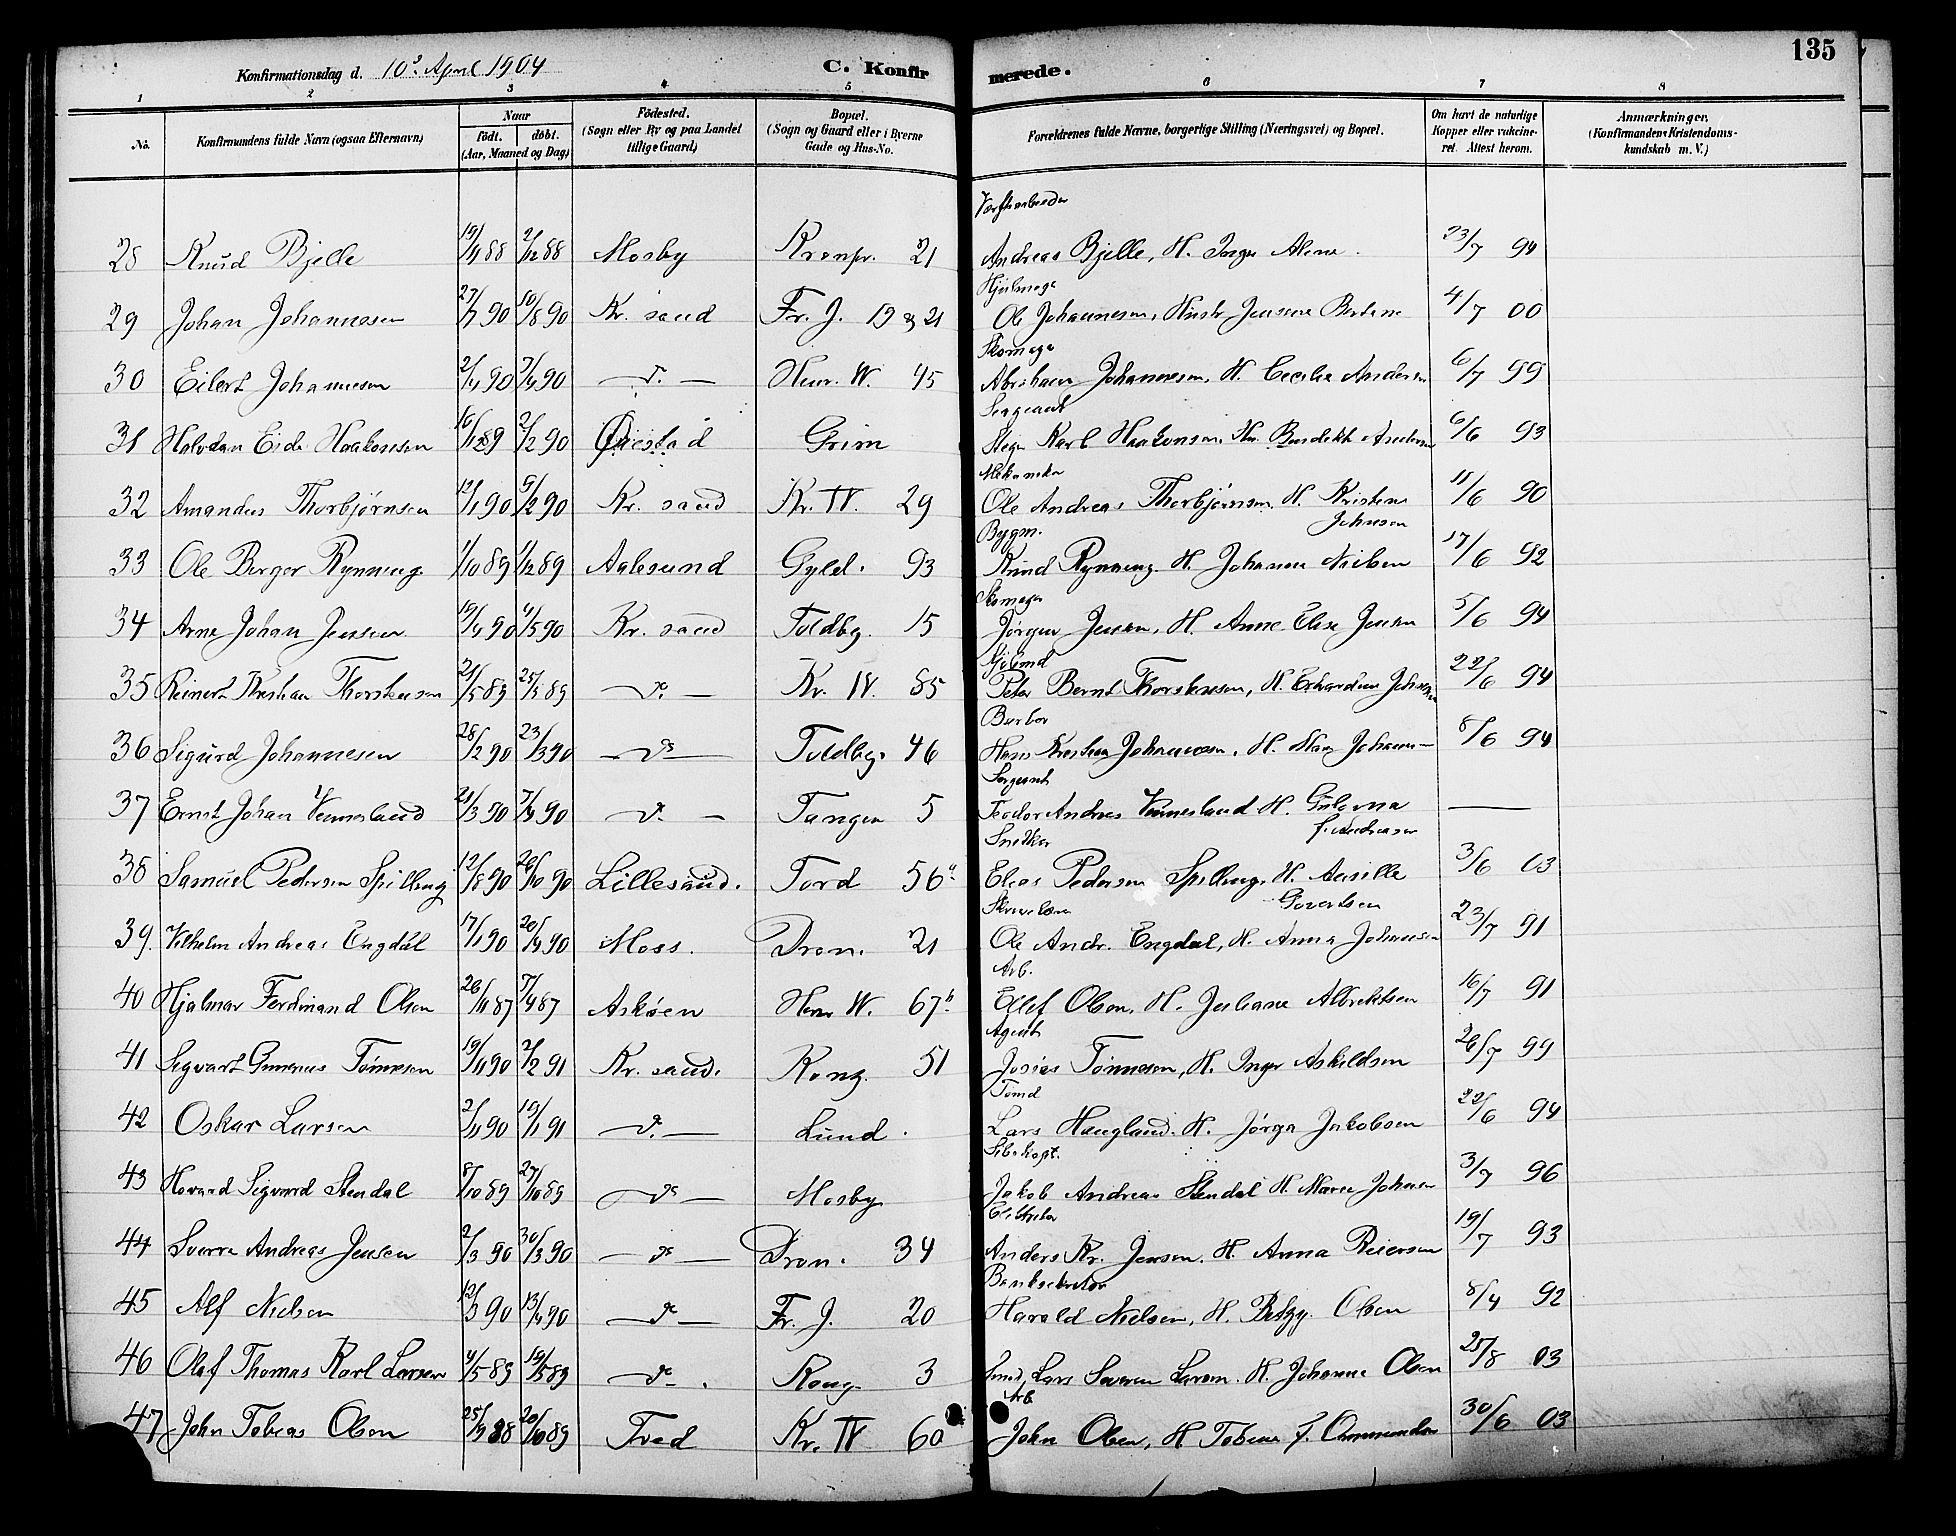 135
Konfirmationsdag d. 10. April 1904
C. Konfirmerede.
1 2 3 4 5 6 7 8
No.
Konfirmandens fulde Navn (ogsaa Efternavn)
Naar
født. døbt.
(Aar, Maaned og Dag)
Fødested.
(Sogn eller By og paa Landet
tillige Gaard)
Bopæl.
(Sogn og Gaard eller i Byerne
Gade og Hus-No.
Forældrenes fulde Navne, borgerlige Stilling (Næringsvei) og Bopæl.
Om havt de naturlige
Kopper eller vakcine-
ret. Attest herom.
Anmærkninger.
(Konfirmandens Kristendoms-
kundskab m. V.)
28 Knud Bjelle 19/11 88 2/12 88 Mosby Kronpr. 21 Andreas Bjelle, H. Inger 23/7 94
Hjulmager
29 Johan Johannesen 27/7 90 10/8 90 Kr. sand Fr. J. 19 & 21 Ole Johannesen, Hustr 4/7 00
Skomager
30 Eilert Johannesen 2/4 90 7/4 90 do Henr. W. 45 Abraham Johannesen, H. Cecilie Andersen 6/7 99
Sergeant
31 Halvdan Eide Haakonsen 16/12 89 2/2 90 Øiestad Grim Karl Haakonsen, Andersen 6/6 93
32 Amandus Thorbjørnsen 12/1 90 9/2 90 Kr. sand Kr. IV. 29 Ole Andreas Thorbjørnsen, H. Kristine Johnsen 11/6 90
Bygm.
33 Ole Berger Rynning 1/10 89 1/12 89 Aalesund Gyld. 93 Knud Rynning. H. Johanne Nielsen 17/6 92
Skomager
34 Arne Johan Jensen 19/4 90 4/5 90 Kr. sand Toldbg. 15 Jørgen Jensen, H. Anne Elise Jensen 5/6 94
35 Reinert Kristian Thorstensen 21/5 89 25/5 89 do Kr. IV. 85 Peter Bernt Thorstensen, H. 22/6 94
Barber
36 Sigurd Johannesen 28/2 90 23/3 90 do Toldbg. 46 Hans Kristian Johannesen, H. 8/6 94
Sergeant
37 Ernst Johan Venneslaud 21/3 90 7/4 90 do Tangen 5 Teodor Andreas Venneslaud H. Gulovna f. Andreasen —
Snedker
38 Samuel Pedersen Spilling 12/8 90 26/10 90 Lillesand. Tord 56a. Elias Pedersen Spilling, H. Aasille Govertsen 3/6 03
39. Vilhelm Andreas Engdal 17/1 90 20/4 90 Moss. Dron. 21 Ole Andr. Engdal, H. Anna Johansen 23/7 91
Arb.
40 Hjalmar Ferdinand Olsen 26/11 87 7/4 87 Askøen Henr W. 67b. Ellef Olsen, H. Juliane Albrektsen 16/7 91
Agent
41 Sigvart Gunerius Tønnesen 19/11 90 2/2 91 Kr. sand. Kong. 51 Josias Tønnesen, H. Inger Askildsen 26/7 99
Tømd
42 Oskar Larsen 2/11 90 19/1 91 do Lund. Lars Haugland. H. Jørga Jakobsen 22/6 94
43 Havard Sigvard Stendal 8/10 89 27/10 89 do Mosby Jakob Andreas Stendal H. Maren Johnsen 3/7 96
44 Sverre Andreas Jensen 2/3 90 30/3 90 do Dron. 34 Anders Kr. Jensen. H. Anna Reiersen 19/7 93
45 Alf Nielsen 12/3 90 13/4 90 do Fr. J. 20 Harald Nielsen, H. Betzy Olsen 8/4 92
46 Olaf Thomas Karl Larsen 4/5 89 19/5 89 do Kong. 3 Smed, Lars Severin Larsen. H. Johanne Olsen 25/8 03
Arb.
47 John Tobias Olsen 25/9 88 20/10 89 Tved Kr. IV 60 John Olsen, H Tobine f. Ommundsen 30/6 03